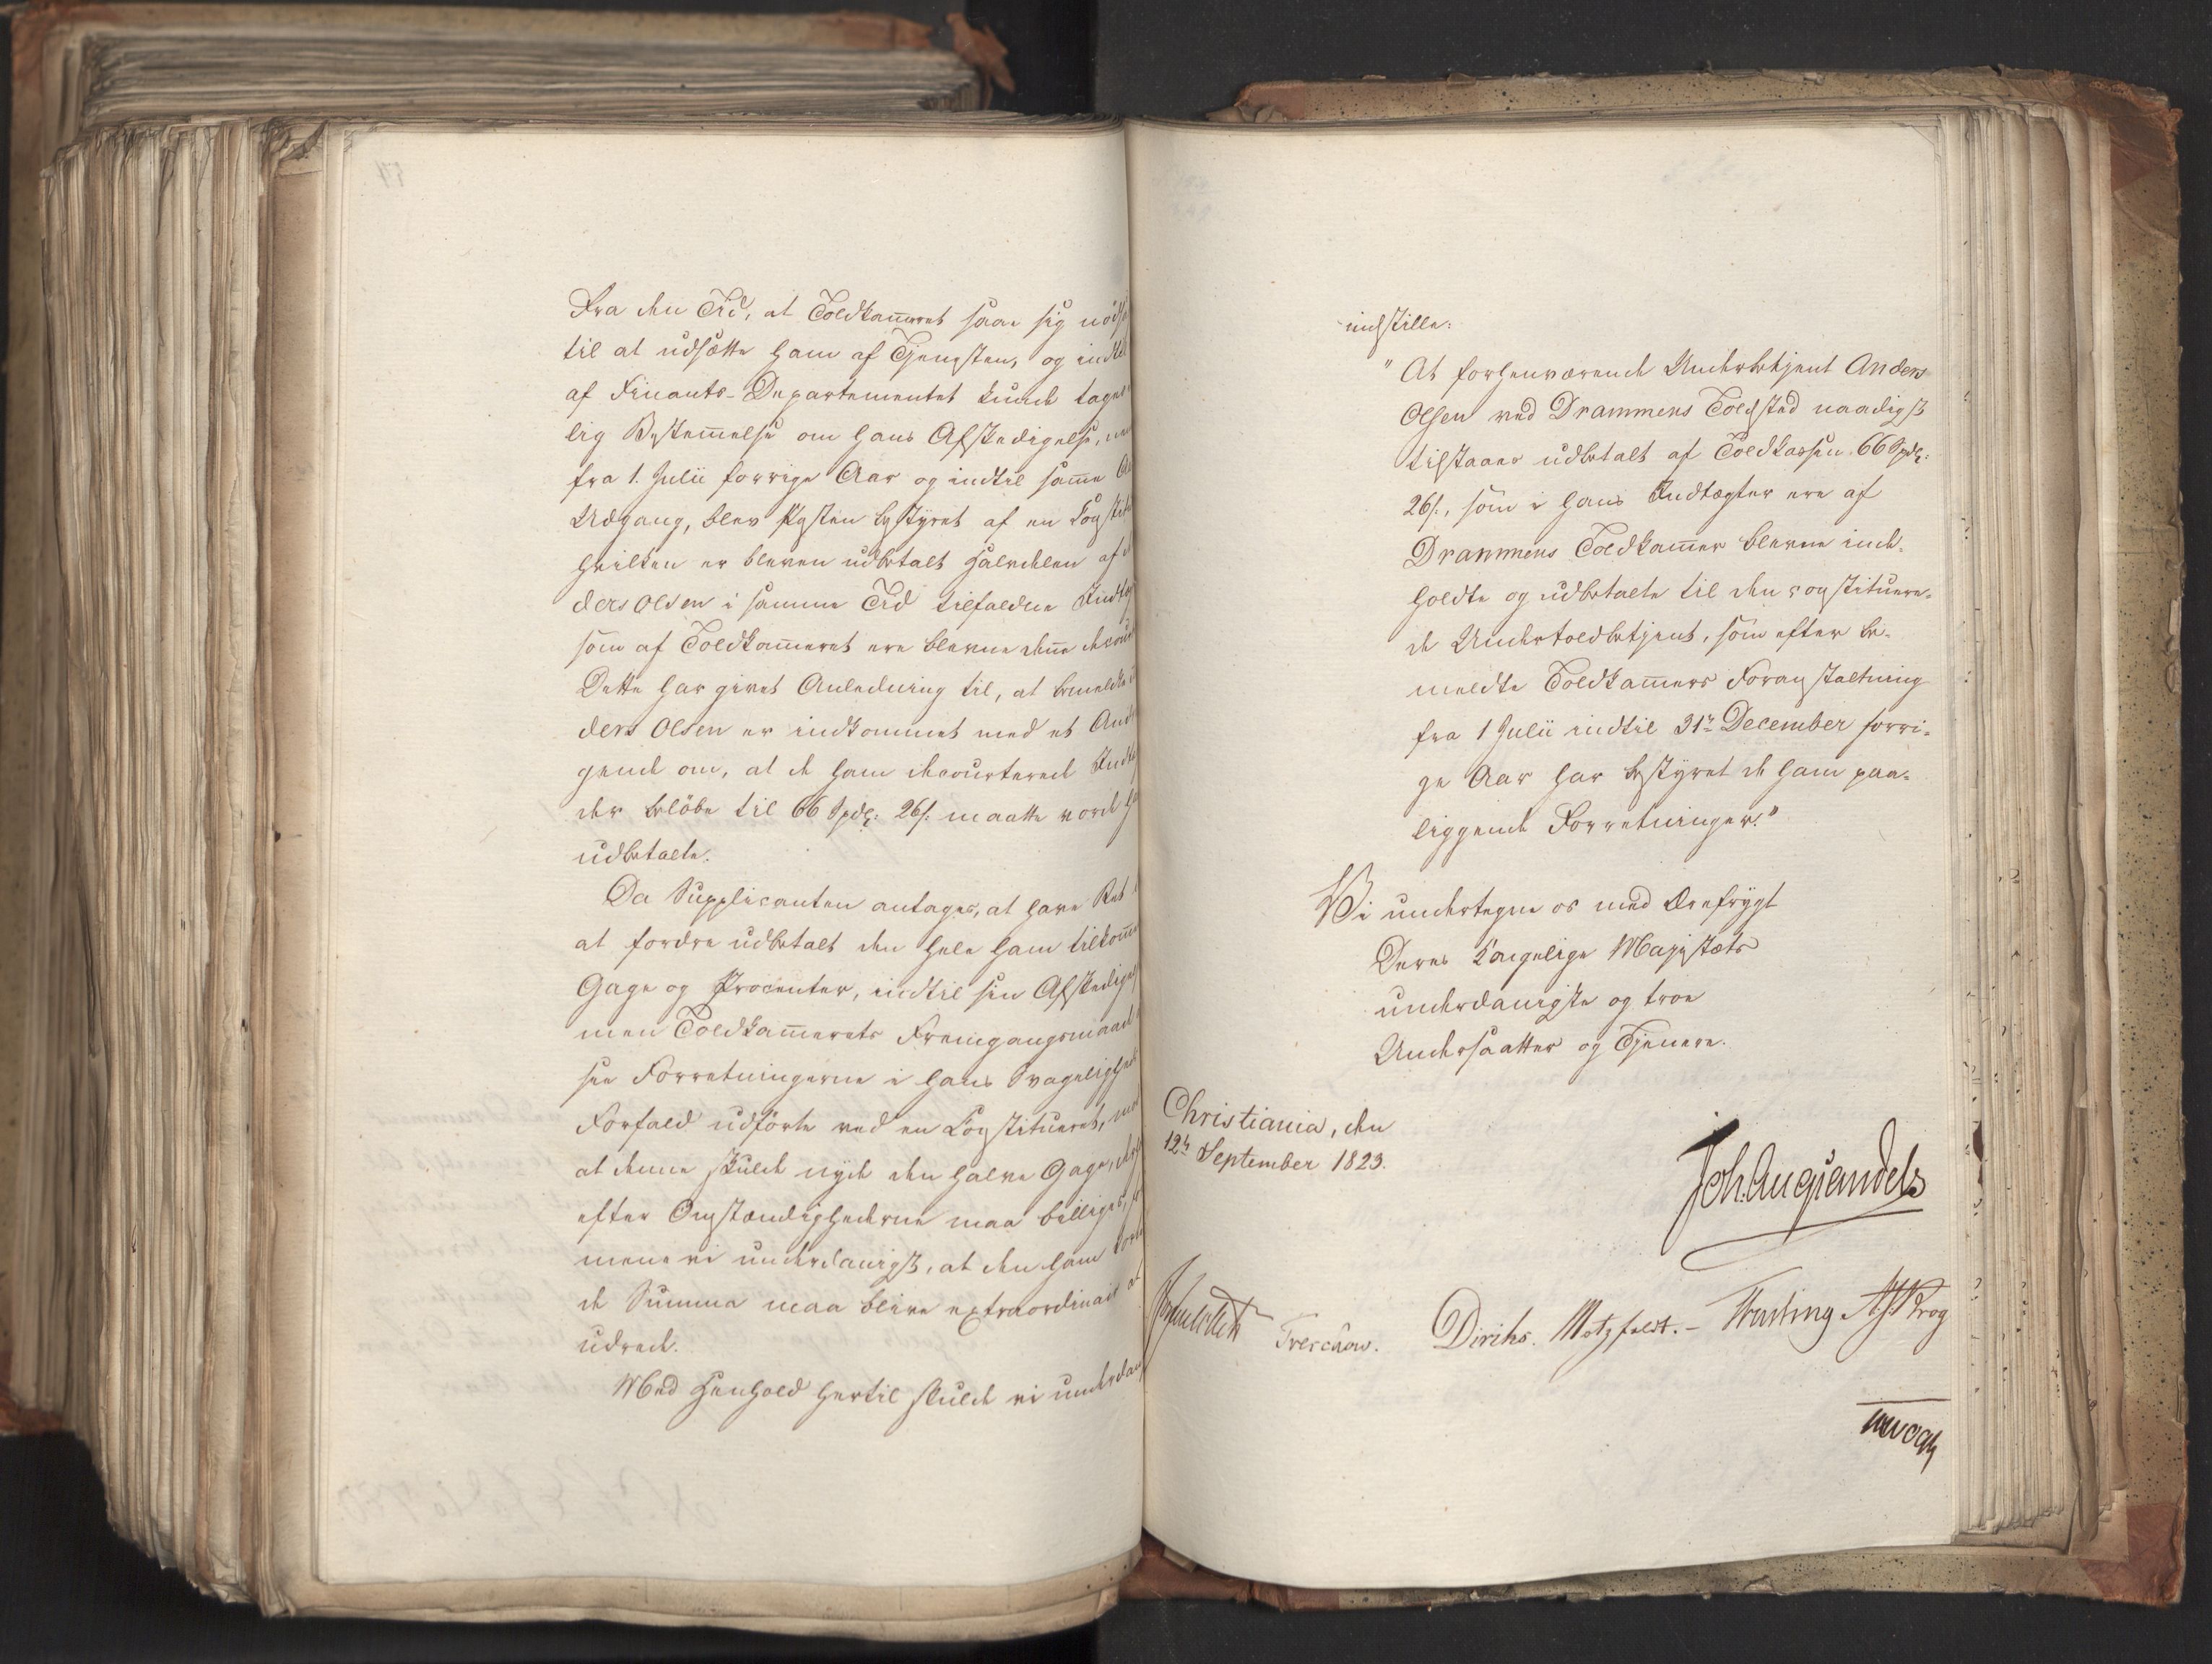 Fra den Tid, at Toldkam̅eret saae sig nöds
til at udsætte ham af Tjenesten, og indtil
af Finants-Departementet kunde tages
lig Bestem̅else om hans Afskedigelse,
fra 1. Julii forrige Aar og indtil sam̅e
Udgang, blev Posten bestyret af en Constit
hvilken er bleven udbetalt Halvdelen af
ders Olsen i samme Tid tilfaldne Indtæg
som af Toldkam̅eret ere blevne den̅e decour
Dette har givet Anledning til, at bemeldte
ders Olsen er indkommet med et Andra
gende om, at de ham decourterede Indtæg
der belöbe til 66 Spdlr: 26 s. maatte vorde ha
udbetalte.
Da Supplicanten antages, at have Ret
at fordre udbetalt den hele ham tilkom̅e
Gage og Procenter, indtil sin Afskedigel
men Toldkam̅erets Fremgangsmaade
see Forretningerne i hans Svageligheds
Forfald udförte ved en Constitueret, mod
at denne skulde nyde den halve Gage,
efter Omstændighederne maa billiges,
mene vi underdanigst, at den ham
de Summa maa blive extraordinair
udrede.
Med Henhold hertil skulde vi underdan
indstille:
"At forhenværende Underbetjent Anders
Olsen ved Drammens Toldsted naadigst
tilstaaes udbetalt af Toldkassen 66 Spdlr:
26 s., som i hans Indtægter ere af
Drammens Toldkam̅er blevne inde-
holdte og udbetalte til den constituere-
de Undertoldbetjent, som efter be-
meldte Toldkam̅ers Foranstaltning
fra 1 Julii indtil 31te December forri-
ge Aar har bestyret de ham paa-
liggende Forretninger."
Vi undertegne os med Ærefrygt
Deres Kongelige Majestæts
underdanigste og troe
Undersaatter og Tjenere.
Christiania, den
12te September 1823.
Joh. Aug. Sandels
Sommerfeldt
Treschow.
Diriks.
Motzfeldt. -
Fasting
A. J. Krog